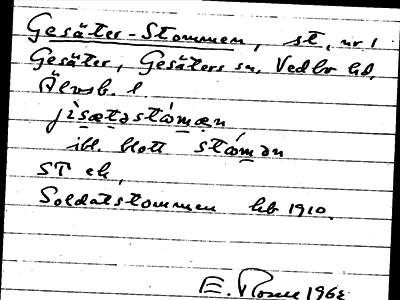 Gesäter-Stommen, st, nr 1
Gesäter, Gesäters sn, Vedbo hd,
Älvsb. l
jìsætəstòmæn
ibl. blott stómən
ST ek,
Soldatstommen kb 1910.
E. Rosell 1962